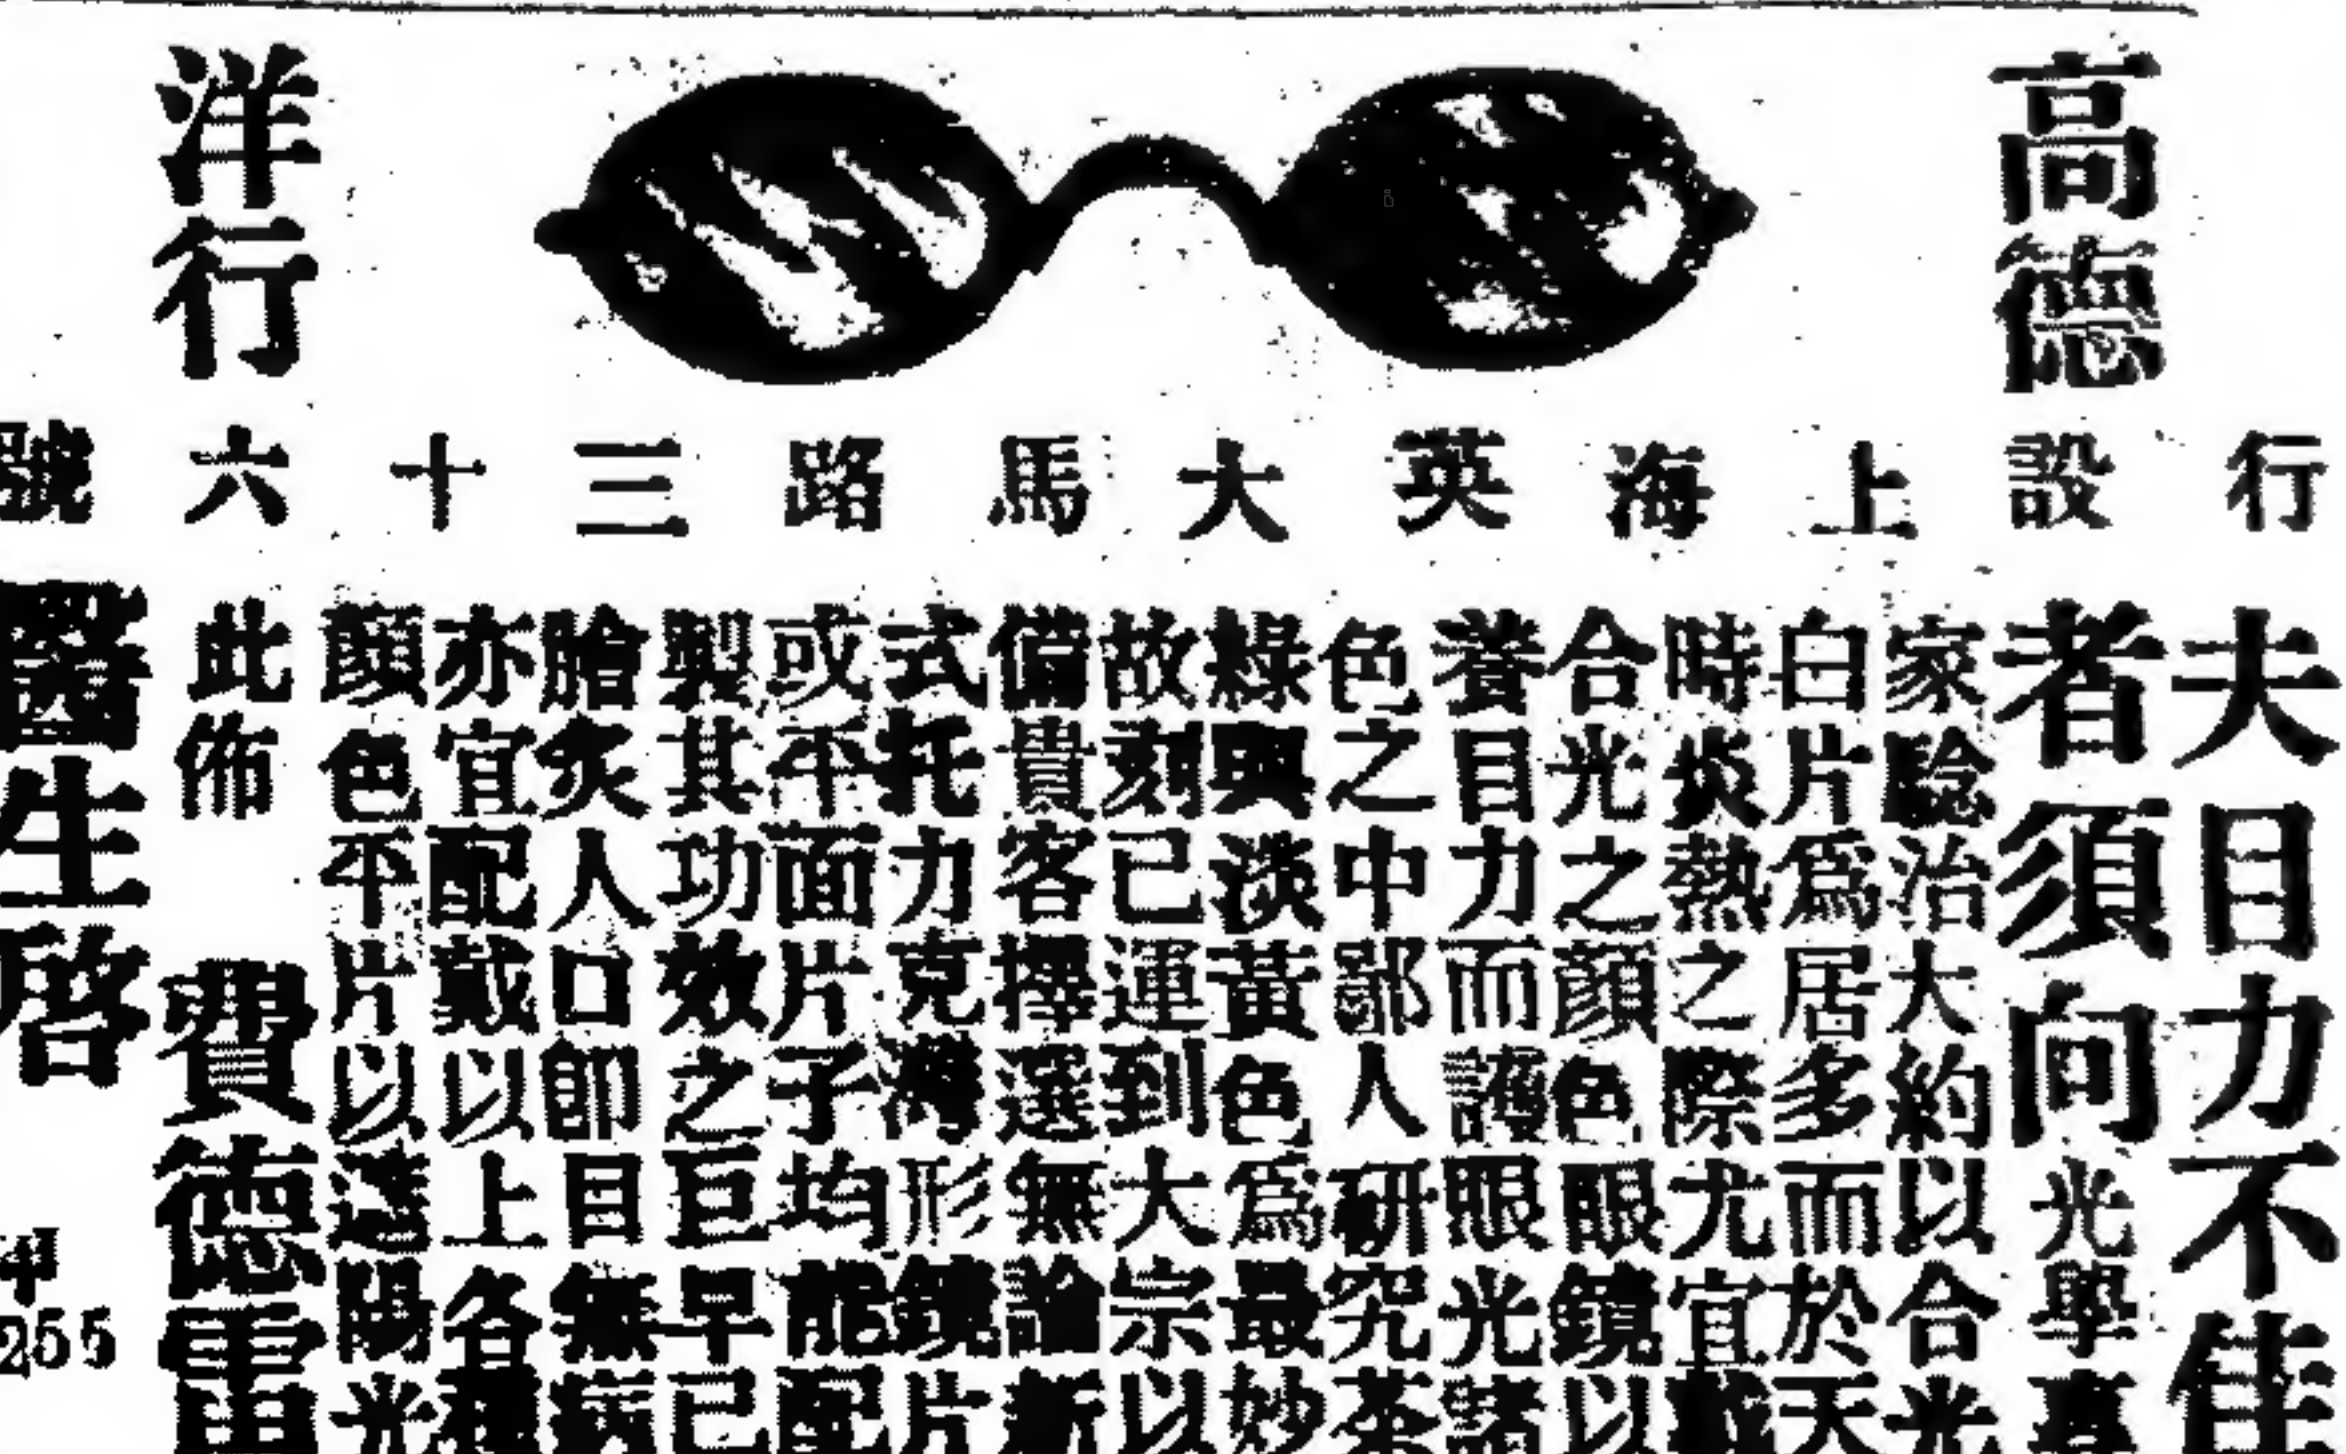 高德
洋行
行設上海英大馬路三十六號
夫目力不佳
者須向光學專
家驗治大約以合光
白片為居多而於天
時炎熱之際尤宜戴
合光之顏色眼鏡以
養目力而護眼光諸
色之中鄙人研究茶
綠與淡黃色為最妙
故刻已運到大宗以
備貴客擇選無論新
式托力克灣形鏡片
或平面片子均能配
製其功效之巨早已
膾炙人口即目無病
亦宜配戴以上各種
顏色平片以遮陽光
此佈
費德雷
醫生啓
甲
255